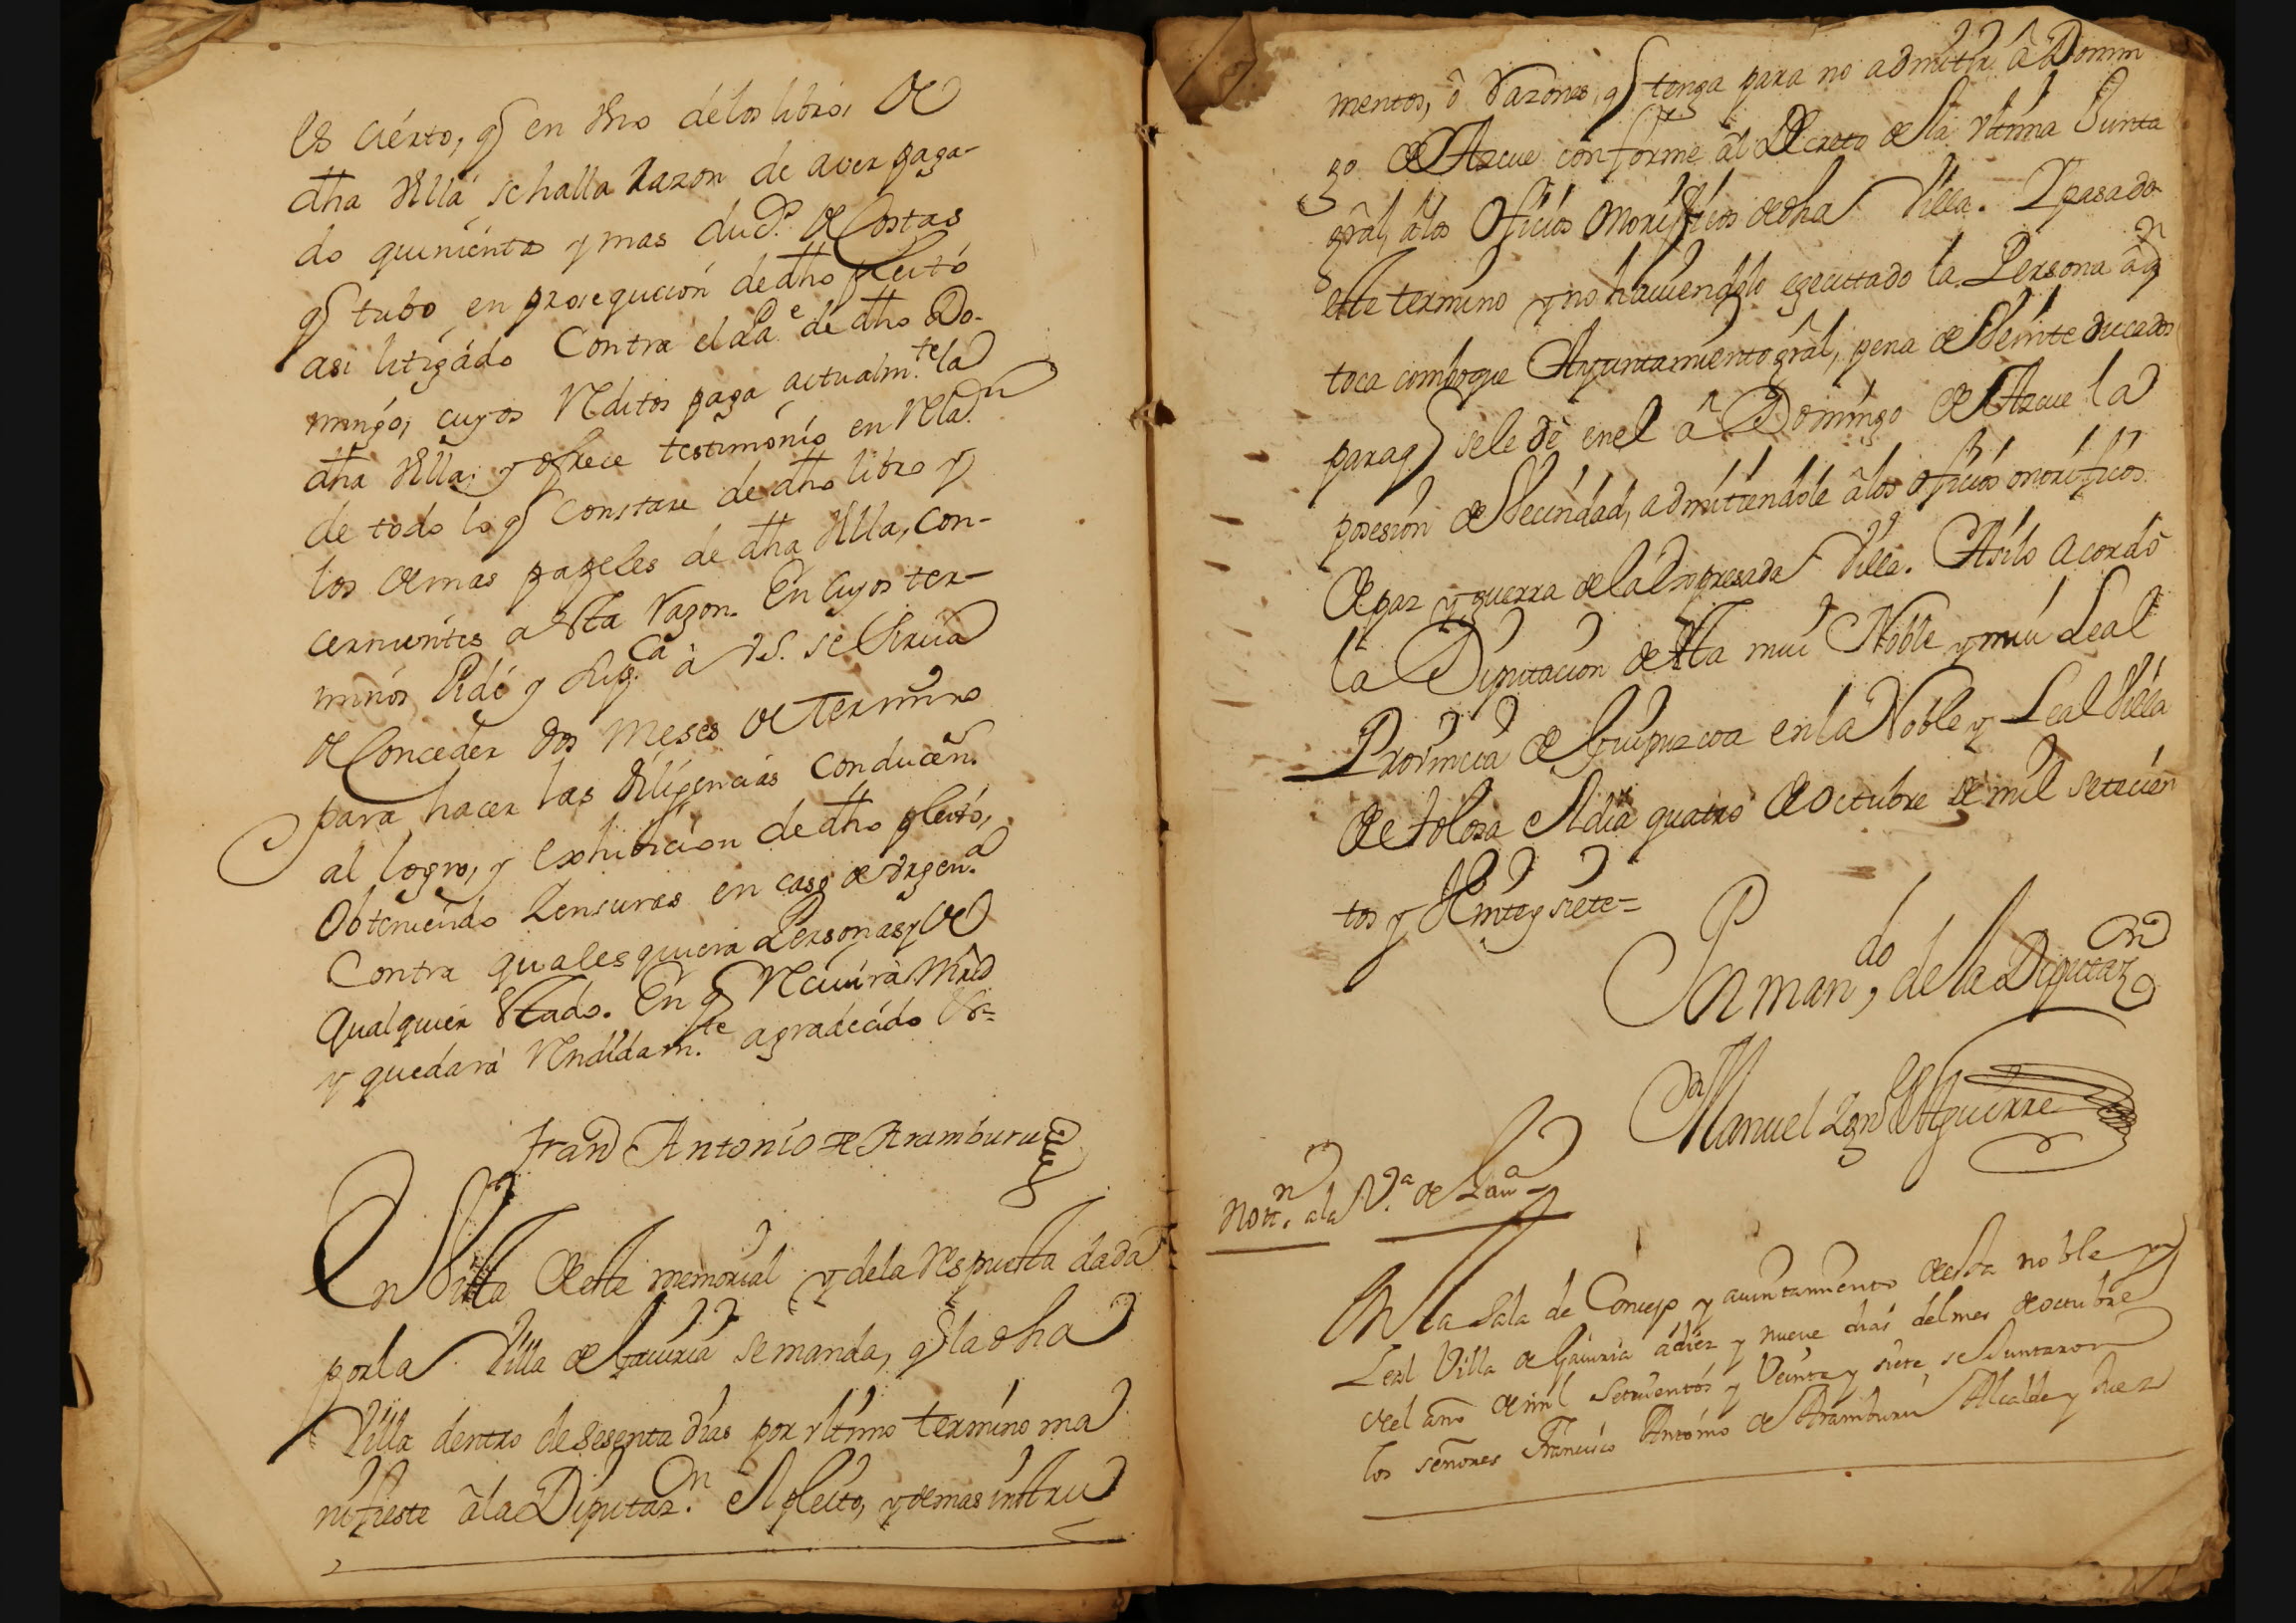 es ciérto, q̃ en Vno délos libros de
dha Villa se halla Razon de aver paga-
do quinientos y mas ducs. de Costas
q̃ tubo en prosequción de dho pleitó
asi litigádo Contra el Pae. de dho Do-
mingo, cuyos Reditos paga actualmte. la
dha Villa; y ofrece testimónio en Relan.
de todo lo q̃ Constare de dho libro y
los demas papeles de dha Villa, con-
cernientes a esta Razon. En cuyos ter-
minos Pide y Supca. à V.S. se sirua
de Conceder dos meses de termino
para hacer las diligencias conducen.
al logro, y exhibicion de dho pleito,
Obteniendo Zensuras en caso de Vrgena.
Contra qualesquiera Personas y de
qualquier estado. En q̃ Reciuirà Mrd
y quedarà Rendidamte. agradecido Vs=
Fran Antonio de Aramburu
En Vista de este memorial y dela respuesta dada
por la Villa de Gauiria se manda, q̃ la dha
Villa dentro de sesenta dias por vltimo termino ma
nifieste âla Diputazn. el pleito, y demas instru
mentos, ô razones q̃ tenga para no admitir â Domin
go de Azcue conforme âl Decreto de la vltima Junta
grâl, âlos Oficios Onorificos de dha Villa. Y pasado
este termino y no hauiendolo egecutado la Persona âq̃n
toca comboque Ayuntamiento grâl, pena de Veinte ducados
paraq̃ sele dè enel â Domingo de Azcue la
posesión de Vecindad, admitiendole âlos oficios onorificos
de paz y guerra de la Expresada Villa. Asilo acordò
la Diputacion de esta mui Noble y mui Leal
Provincia de Guipuzcoa en la Noble y Leal Villa
de Tolosa el dia quatro de Octubre de mil setecien
tos y Veinte y siete=
Por mando, de la Diputazn
Dn Manuel Ign de Aguirre
Notn. ala Va. de Gaua
En la Sala de Concejo y auintamiento de esta noble y
Leal Villa de Gauiria â diez y nueve dias del mes de octubre
del año de mil setecientos y Veinte y siete, se Juntaron
los señores Francisco Antonio de Aramburu Alcalde y Juez